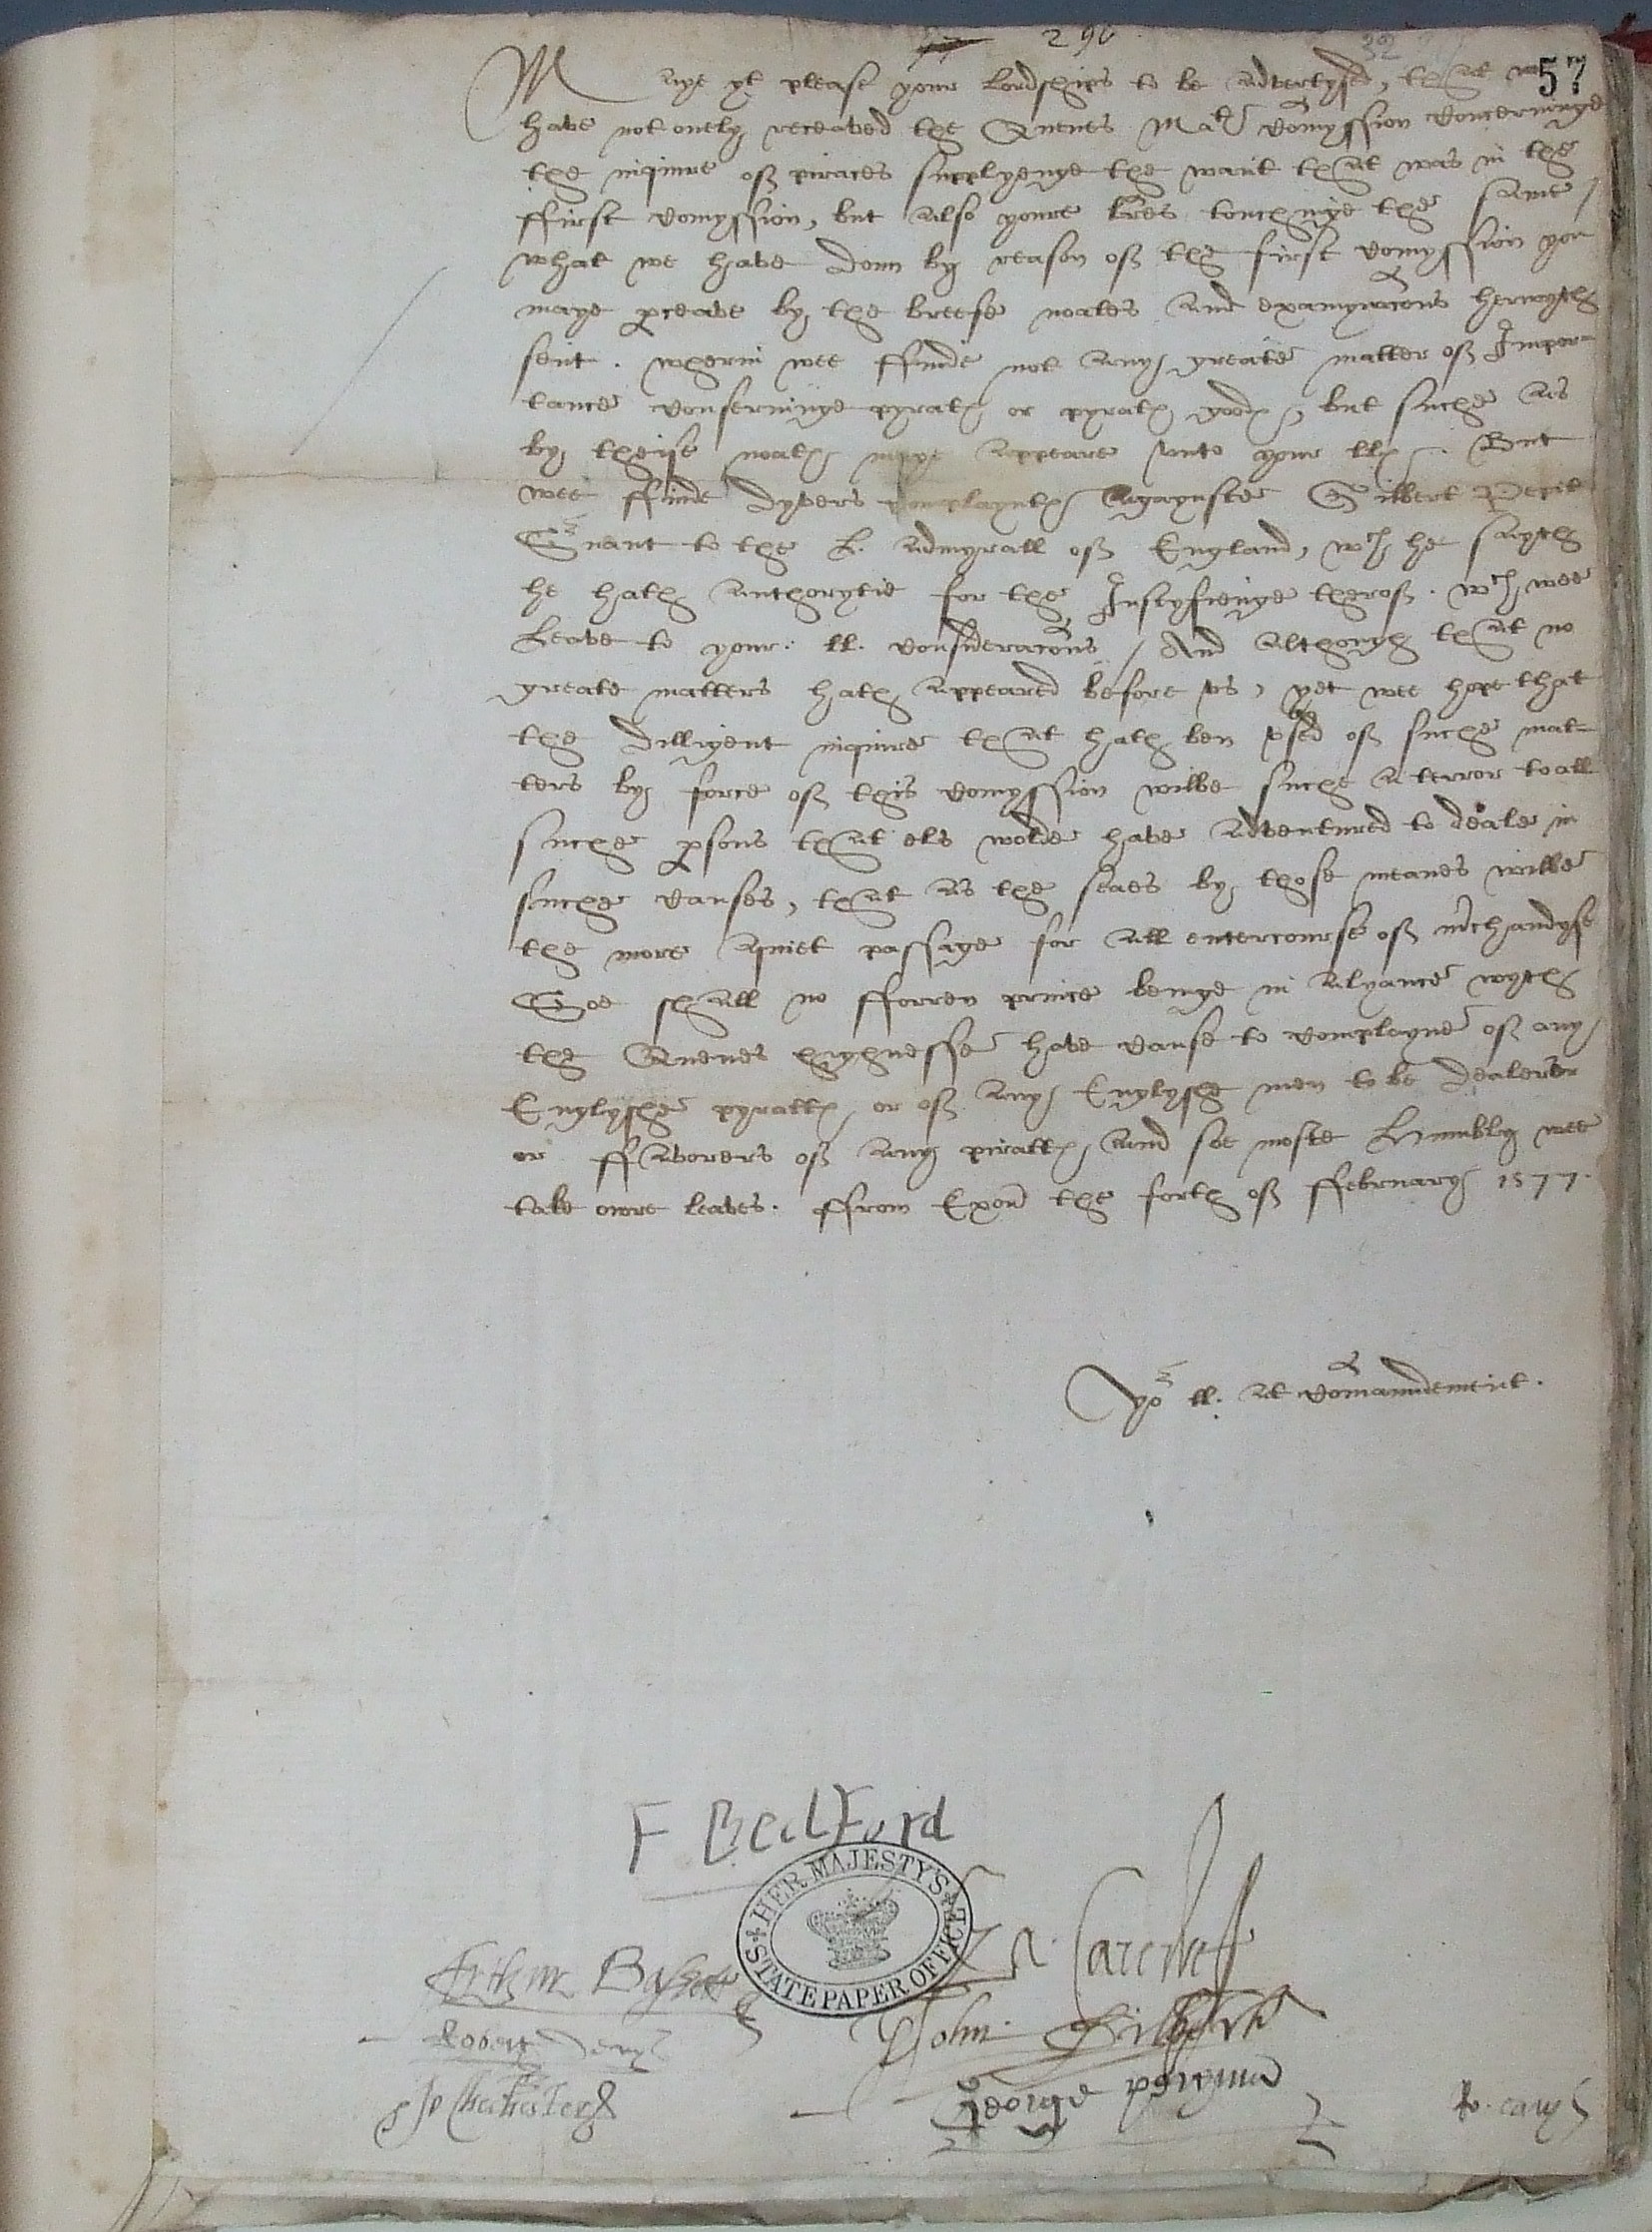 290
32
57
Maye yt please your Lordships to be advertysed, that we
have not onely receaved the Quenes Matꝭ comyssion concerninge
the inquire of piraces supplyenge the want that was in the
ffirst comyssion, but also youre lres touchinge the same /
what we have donn by reason of the first comyssion you
maye pceave by the breefe noates and examynacons herwyth
sent . wherin wee ffinde not any greate matter of Impor-
tance conserninge pyratꝭ or pyratꝭ goodꝭ, but suche as
by theise noatꝭ maye appeare unto your llꝭ . But
wee ffinde dyvers complayntꝭ agaynste Gilbert
Svant to the L. Admyrall of England, wch he sayth
he hath authorytie for the Justyfienge therof . wch wee
Leave to your : ll. consideracons / And althoughe that no
greate matters hath appeared before us, yet wee hope that
the dilligent inquire that hath ben used of suche mat-
ters by force of this comyssion wilbe suche a terror to all
suche psons that els wolde have adventured to deale in
suche causes, that as the seaes by those meanes wilbe
the more aquiet passage for all entercourse of mchandyse
Soe shall no fforren prince beinge in alyance wyth
the Quenes highnesse have cause to complayne of any
Englyshe pyrattꝭ, or of any Englyshe men to be dealers
or ffavorers of any pirattꝭ, And soe moste Humbly wee
take owre leaves . ffrom Exon the forth of ffebruary 1577 .
Yor ll. at comaundement .
F Bedford
HER MAJESTY'S STATE PAPER OFFICE
Arthur Bassett
John Gilberte
Robert Denys
George
Jo Chichester
Ro. cary